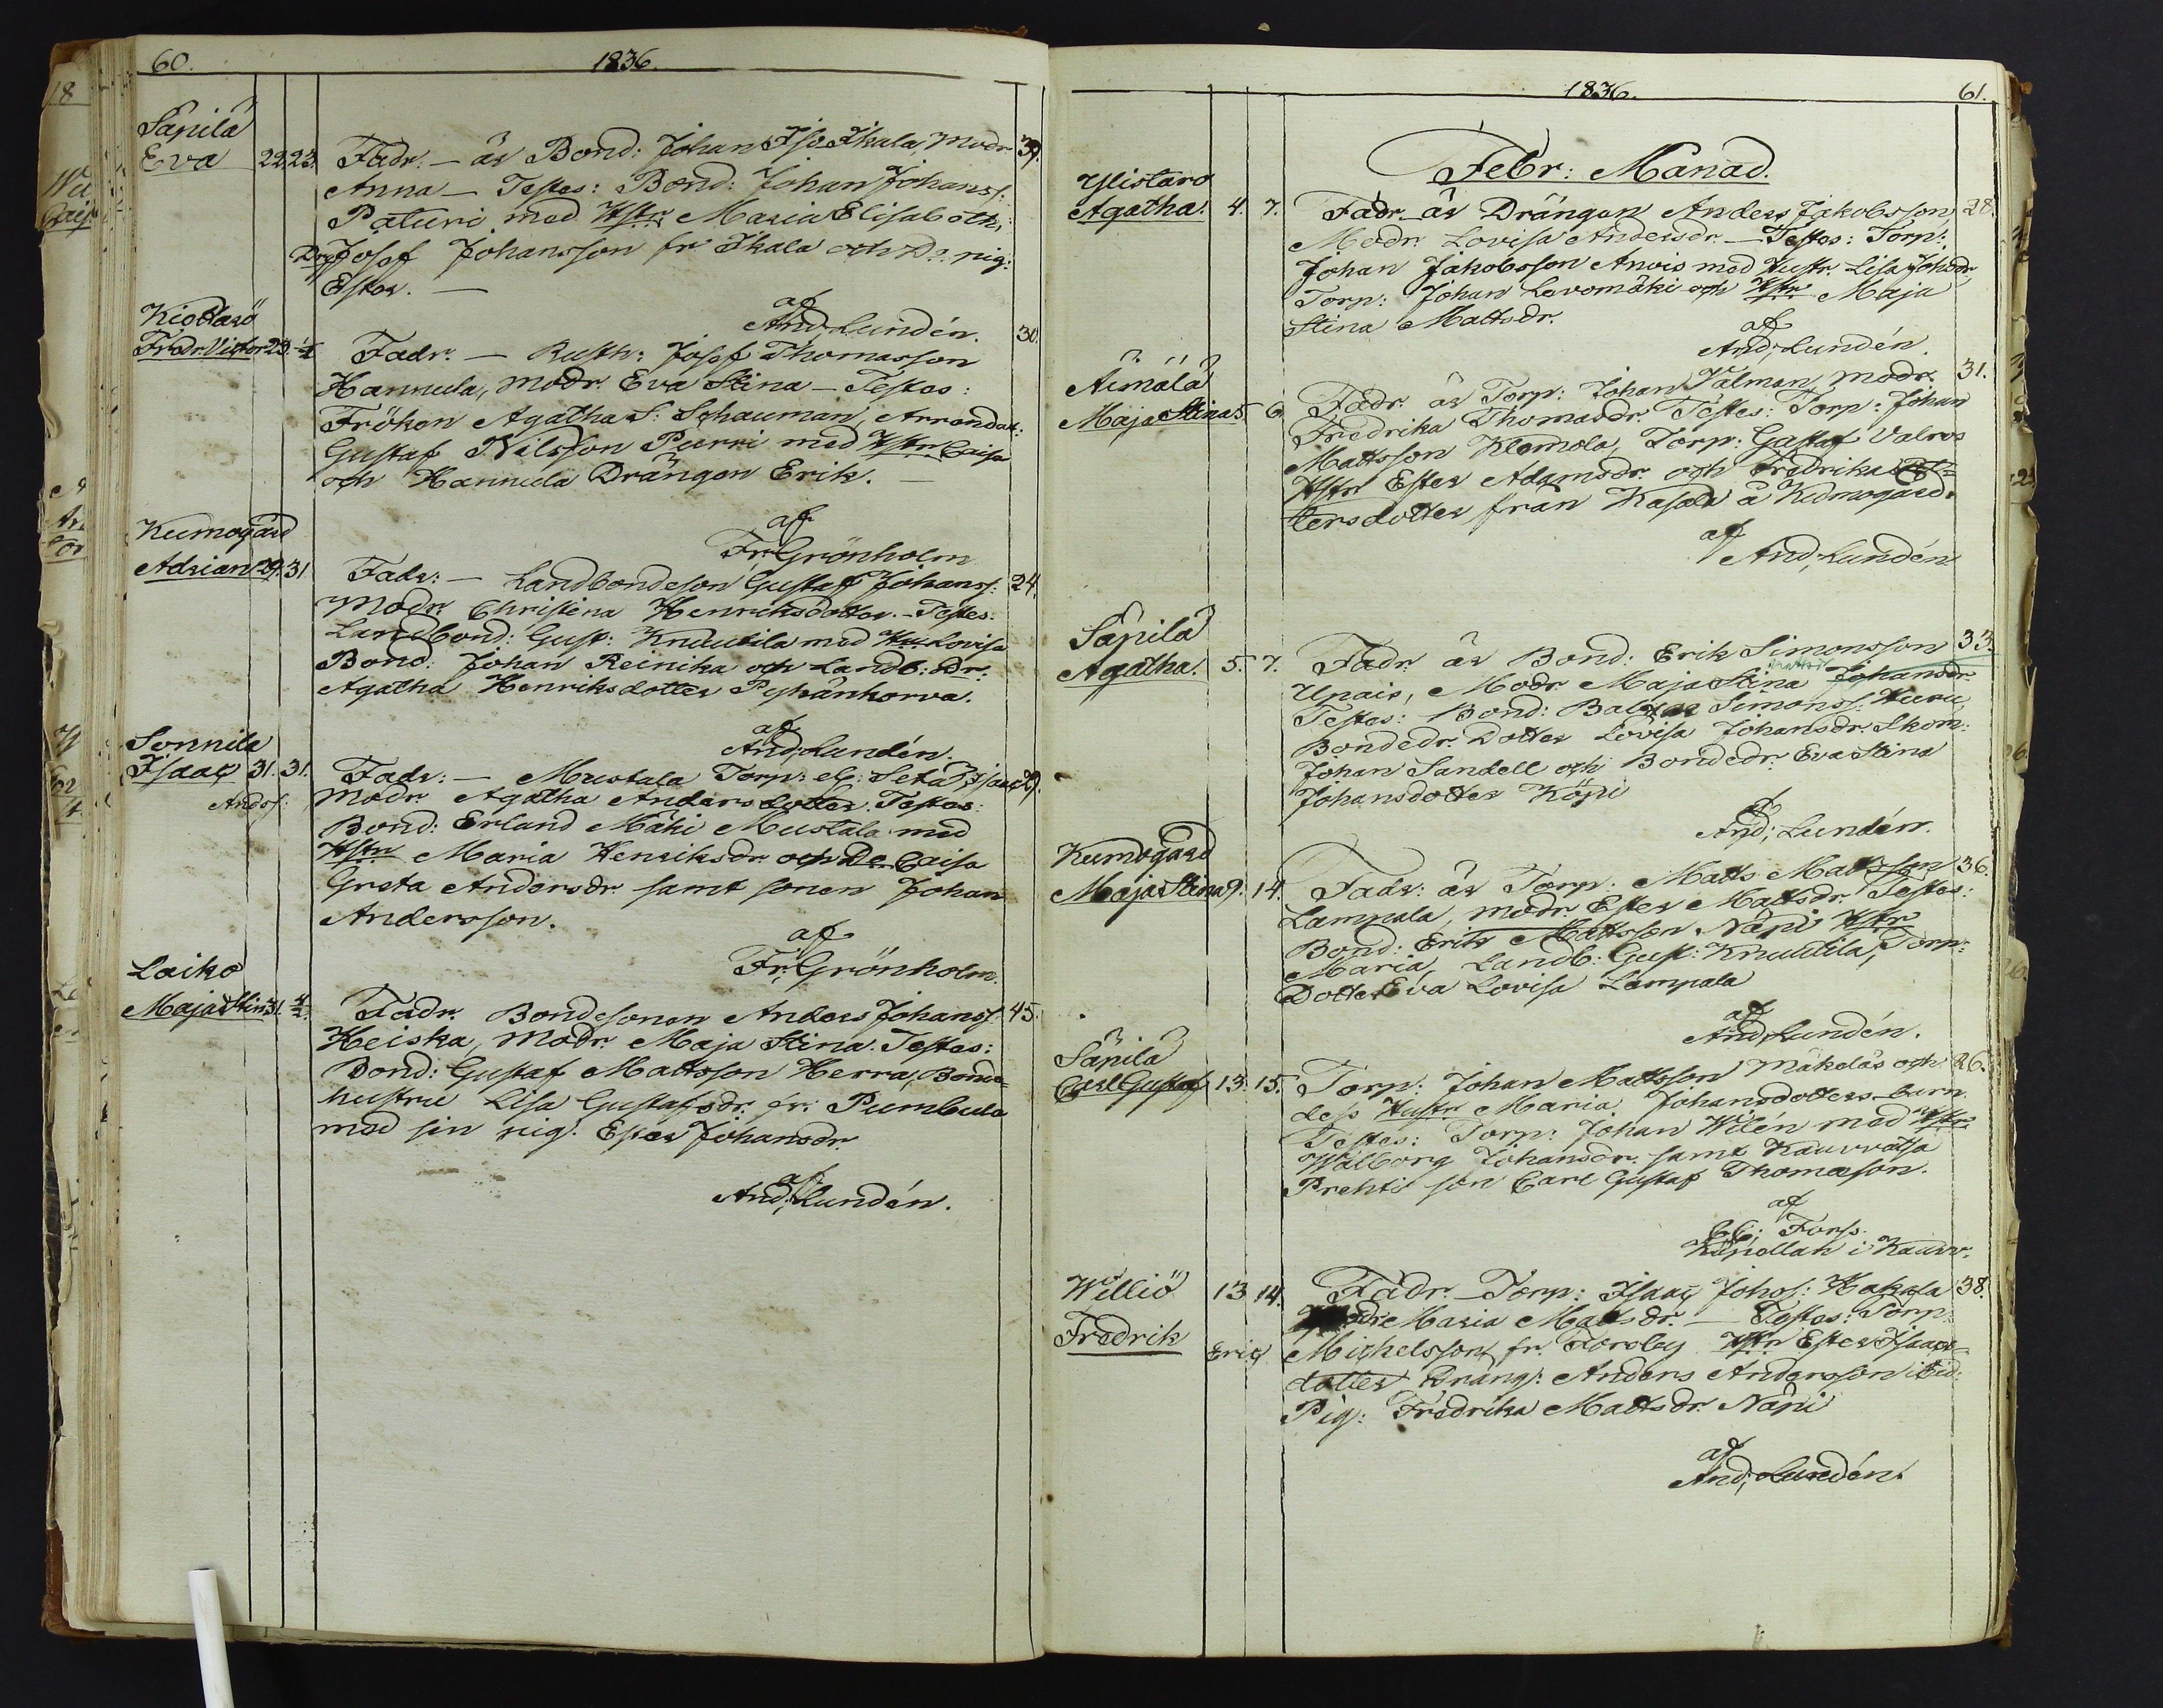 60.
1836.
Säpilä
Eva 22. 23. Fadr. — är Bond: Johan Isr Ikala, Modr 39.
Anna — Testes: Bond: Johan Johanss:
Paturi med Hstr Maria Elisabeth,
Drg Josef Johansson fr Ikala och Do pig:
Ester. —
af
And, Lundén.
Kiettarö
Fredr. Victor 23. Fadr. — Rusth: Josef Thomasson 30.
Hannula, Modr. Eva Stina — Testes:
Fröken Agatha S. Schauman, Arrendat:
Gustaf Nilsson Purri med Hstr Caisa
och Hannula Drängen Erik. —
af
Fr, Grönholm
Kumogård
Adrian 29. 31 Fadr: — Landbondeson Gustaf Johanss: 24.
Modr. Christina Henriksdotter. — Testes:
Landbond: Gust: Knuutila med Hu Lovisa
Bond: Johan Reinika och Landb: dr:
Agatha Henriksdotter Pyhänkorva.
af
And, Lundén.
Sonnila
Isaac 31. 31. Fadr: — Mustala Torp: el: Seta Isaac 29.
Andrs: Modr. Agatha Andersdotter. Testes:
Bond: Erland Mäki Mustala med
Hstr Maria Henriksdr och Do Caisa
Greta Andersdr. samt sonen Johan
Andersson.
af
Fr, Grönholm.
Laiko
Maja Stin 31. 4/2. Fadr. Bondesonen Anders Johanss: 45.
Heiska, Modr. Maja Stina. Testes:
Bond: Gustaf Mattsson Herra, Bonde-
hustru Lisa Gustafsdr. fr: Pumbula
med sin pig: Ester Johansdr.
af
And, Lundén.
1836.
61.
Febr: Månad.
Ylistaro
Agatha. 4. 7. Fadr. är Drängen Anders Jakobsson, 28.
Modr. Lovisa Andersdr. — Testes: Torp:
Johan Jakobsson Anvis med Hustr. Lisa Johsdr,
Torp: Johan Lavomäki och Hstr Maja
Stina Mattsdr.
af
And, Lundén.
Äimälä
Maja Stina 5. 6. Fadr. är Torp: Johan Välman, Modr. 31.
Fredrika Thomasdr. Testes: Torp: Johan
Mattsson Klemola, Torp: Gustaf Valros
Hstr Ester Adamsdr. och Fredrika
tersdotter från Kasala å Kumogård.
af
And, Lundén
Säpilä
Agatha. 5. 7. Fadr är Bond: Erik Simonsson 33.
Upais, Modr. Maja Stina Johansdr
Testes: Bond: Baltzar Simonss: Huru,
Bondedr. Dotter Lovisa Johansdr. Skom:
Johan Sandell och Bondedr: Eva Stina
Johansdotter Köpi
af
And, Lundén.
Kumogård
Maja Stina 9. 14. Fadr: är Torp: Matts Mattsson 36.
Lampala, Modr. Ester Mattsdr. Testes:
Bond: Erik Mattsson Näpi Hstr
Maria, Landb: Gust: Knuutila, Torp:
Dotter Eva Lovisa Lampala
af
And, Lundén.
Säpilä
Carl Gustaf 13. 15. Torp: Johan Mattsson Mäkeläs och 26.
dess Hustr Maria Johansdotters barn.
Testes: Torp: Johan Wilén med Hstr
Wälborg Johansdr. samt Kauvvatsa
Prehti son Carl Gustaf Thomasson.
af
Forss.
Kapellan i Kauvv.
Williö 13 14. Fadr. — Torp: Isaac Johss: Hakala 38.
Modr. Maria Mattsdr. — Testes: Torp:
Fredrik Eric Michelsson fr. Torsby Hstr Ester Isaacs-
dotter Dräng: Anders Andersson ibid:
Pig: Fredrika Mattsdr. Näpi
af
And, Lundén.